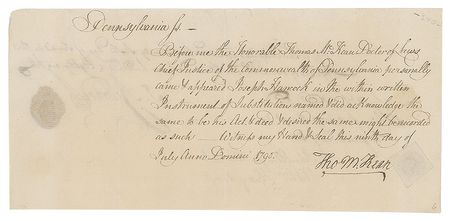 Pennsylvania ss.
Before me the Honorable Thomas McKean Doctor of Laws
Chief Justice of the Commonwealth of Pennsylvania personally
came & appeared Joseph Hancock in the within written
Instrument of Substitution named & did acknowledge the
same to be his Act & deed & desired the same might be recorded
as such — Witness my Hand & Seal this ninth day of
July Anno Domini 1790.
Tho M:Kean